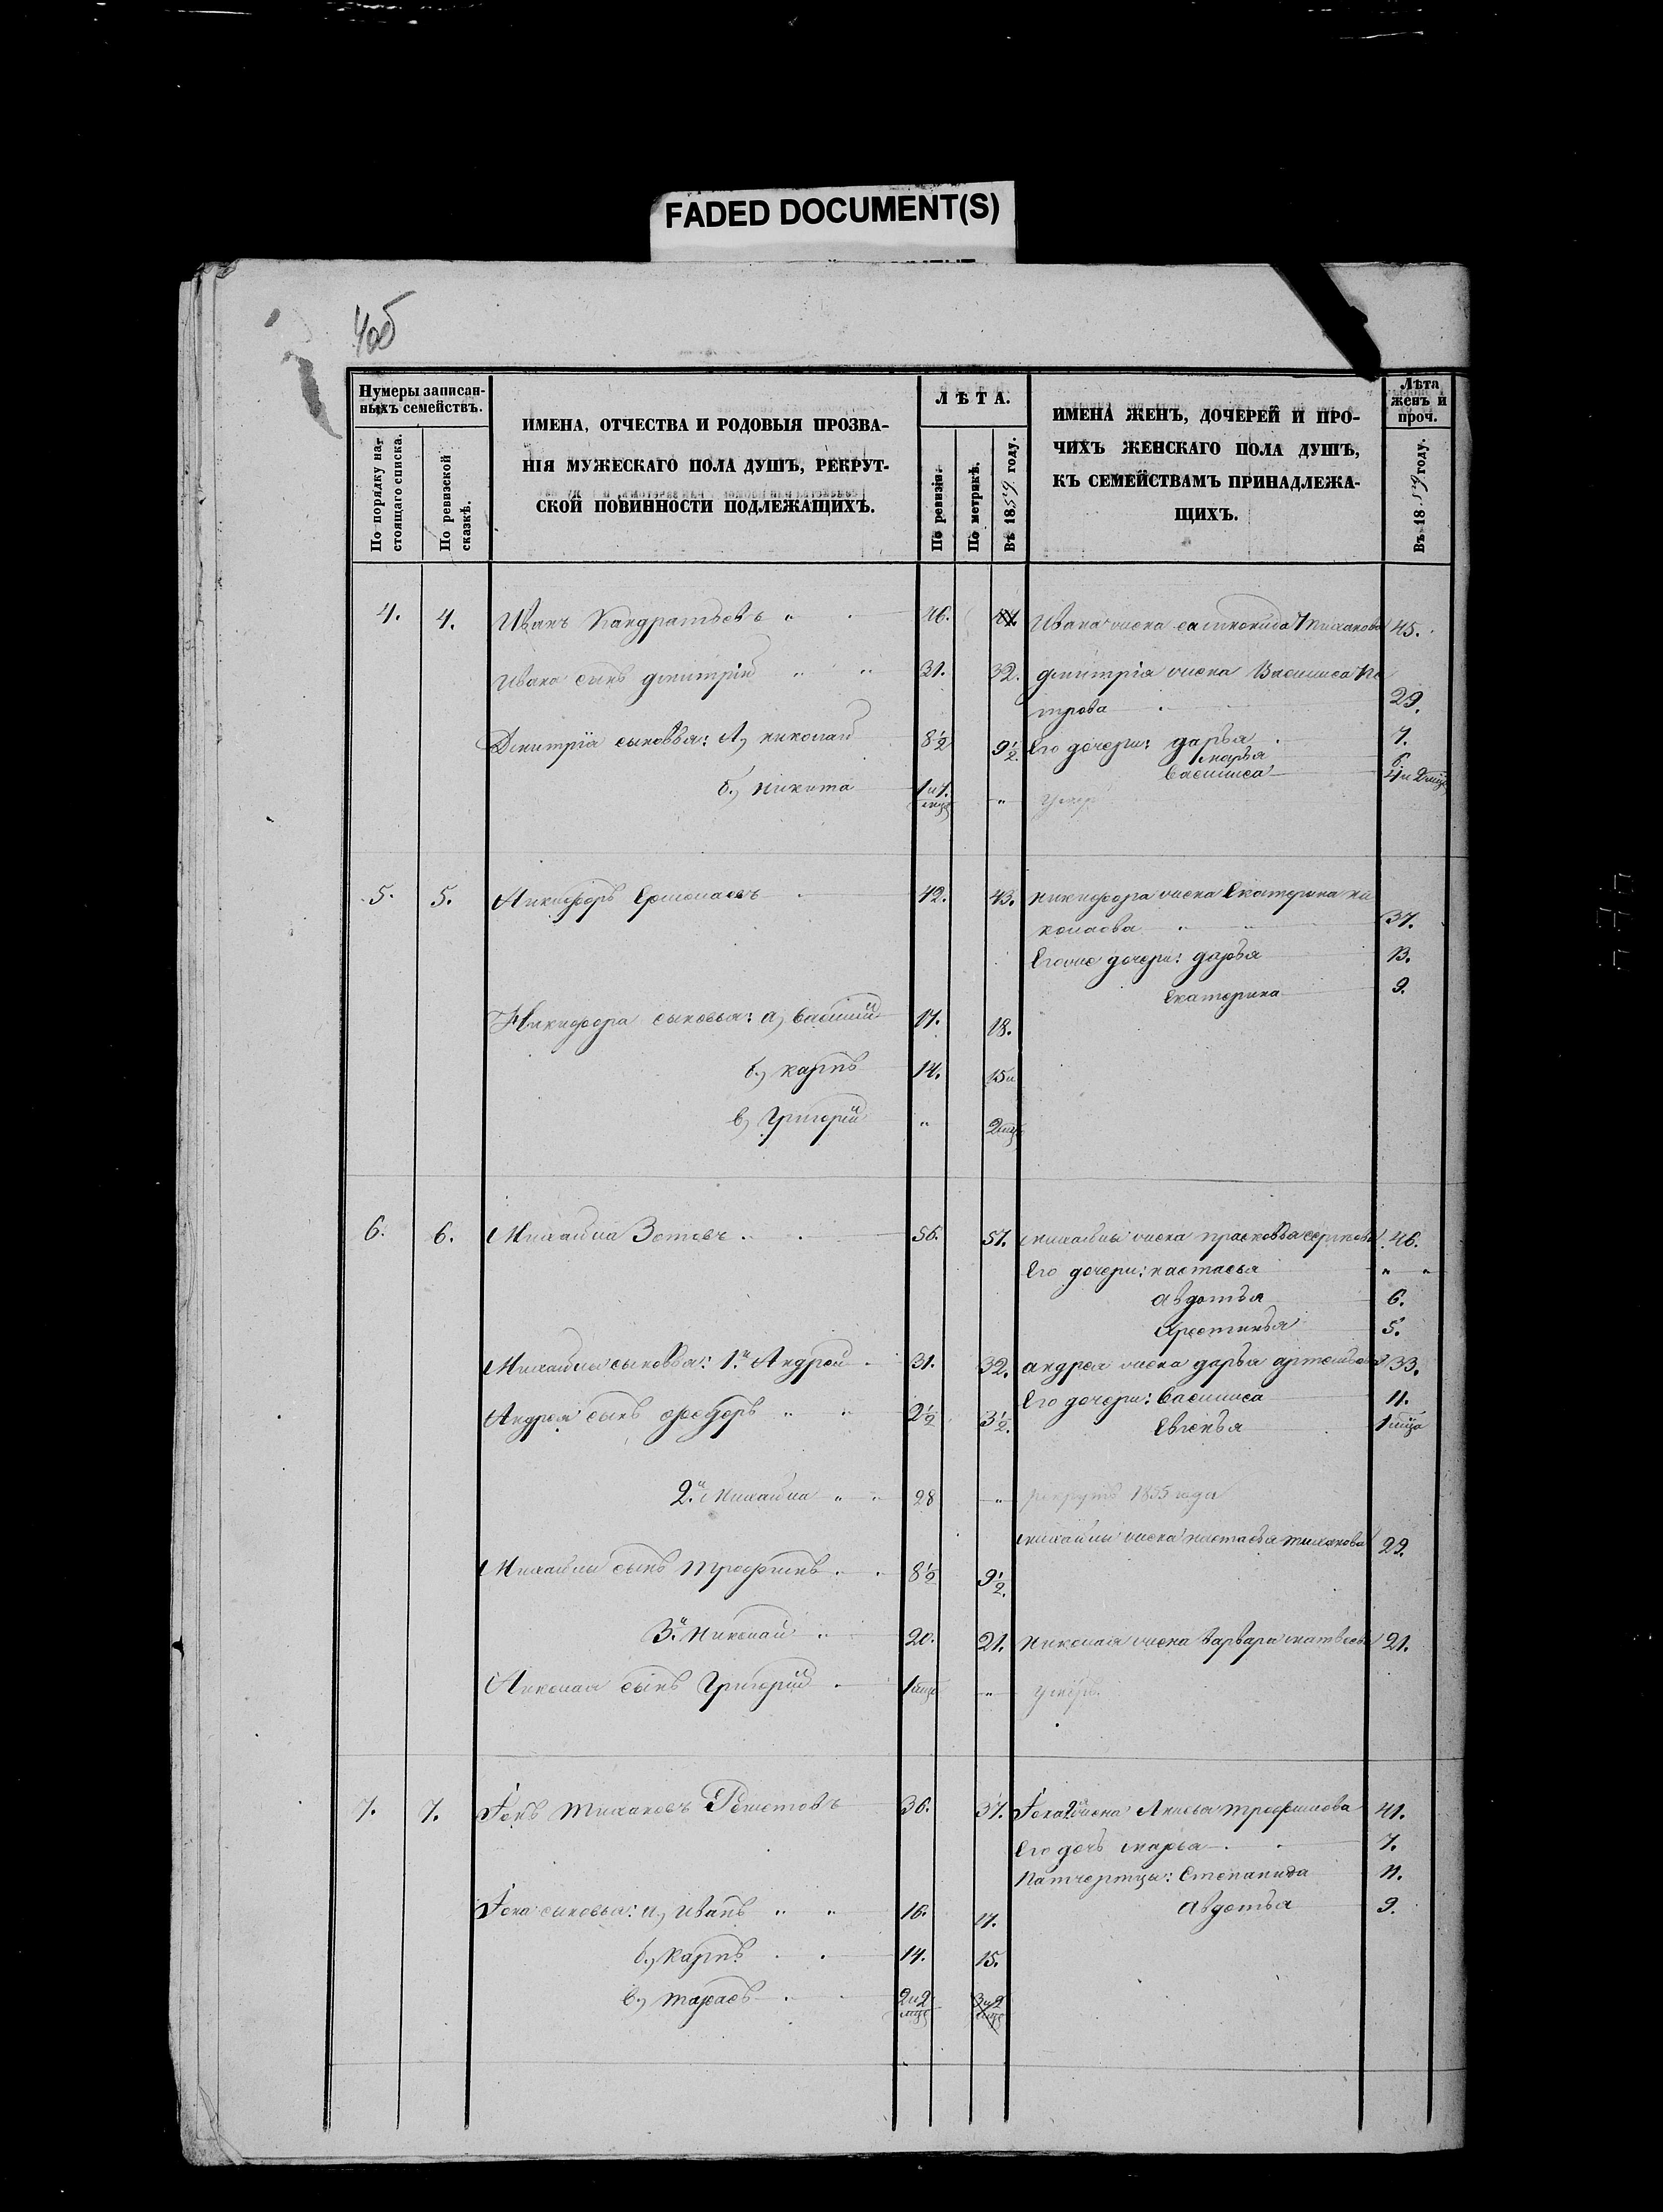 FADED DOCUMENT(S)
4об
Нумеры записан-
ныхъ семействъ.
По порядку на-
стоящаго списка.
По ревизской
сказкѣ.
ИМЕНА, ОТЧЕСТВА И РОДОВЫЯ ПРОЗВА-
НІЯ МУЖЕСКАГО ПОЛА ДУШЪ, РЕКРУТ-
СКОЙ ПОВИННОСТИ ПОДЛЕЖАЩИХЪ.
ЛѢТА.
По ревизіи.
По метрикѣ.
Въ 1859 году.
ИМЕНА ЖЕНЪ, ДОЧЕРЕЙ И ПРО-
ЧИХЪ ЖЕНСКАГО ПОЛА ДУШЪ,
КЪ СЕМЕЙСТВАМЪ ПРИНАДЛЕЖА-
ЩИХЪ.
Лѣта
женъ и
проч.
Въ 1859 году.
4. 4. Иванъ Кандратьевъ " 46. Ивана жена 45.
Ивана сынъ дмитрій " " 31. 32. дмитрія жена Василиса Пе
трова 29.
Дмитрія сыновья: А, николай 8½ 9½ Его дочери: дарья 7.
марья 6
Василиса 4 и 2 мѣс
б., никита 1 и 7. мѣс " умер
5. 5. Никифоръ Ермолаевъ 42. 43. никифора жена Екатерина ни
колаева " " 37.
Егоже дочери: дарья 13.
Екатерина 9.
Никифора сыновья: а, Василій 17. 18.
б., карпъ 14. 15
в, Григорій " 2 мѣс
6. 6. Михайла Зотовъ 56. 57. михайлы жена прасковья 46.
Его дочери: настасья " "
авдотья 6.
Ѳеотинья 5.
Михайлы сыновья: 1й Андрей 31. 32. андрея жена дарья артемьева 33.
Его дочери: Василиса 11.
Андрея сынъ ѳедоръ " " 2½ 3½.
Евгенья 1 мѣца
2й Михайла " " 28 " рекрутъ 1855 года
михайлы жена настасья тихонова 29.
Михайлы сынъ трофимъ 8½ 9½.
3й Николай 20. 21. Николая жена варвара матвеева 21.
Николая сынъ Григорій 1 мѣс " умеръ.
7. 7. Гаврила Тихоновъ 36. 37. жена трофимова 41.
Его дочь марья 7.
Патчерицы: Степанида 11.
авдотья 9.
сыновья: а, Иванъ " " 16. 17.
б., карпъ 14. 15.
в., тарасъ 2 и 2 мѣс 3 и 2 мѣс